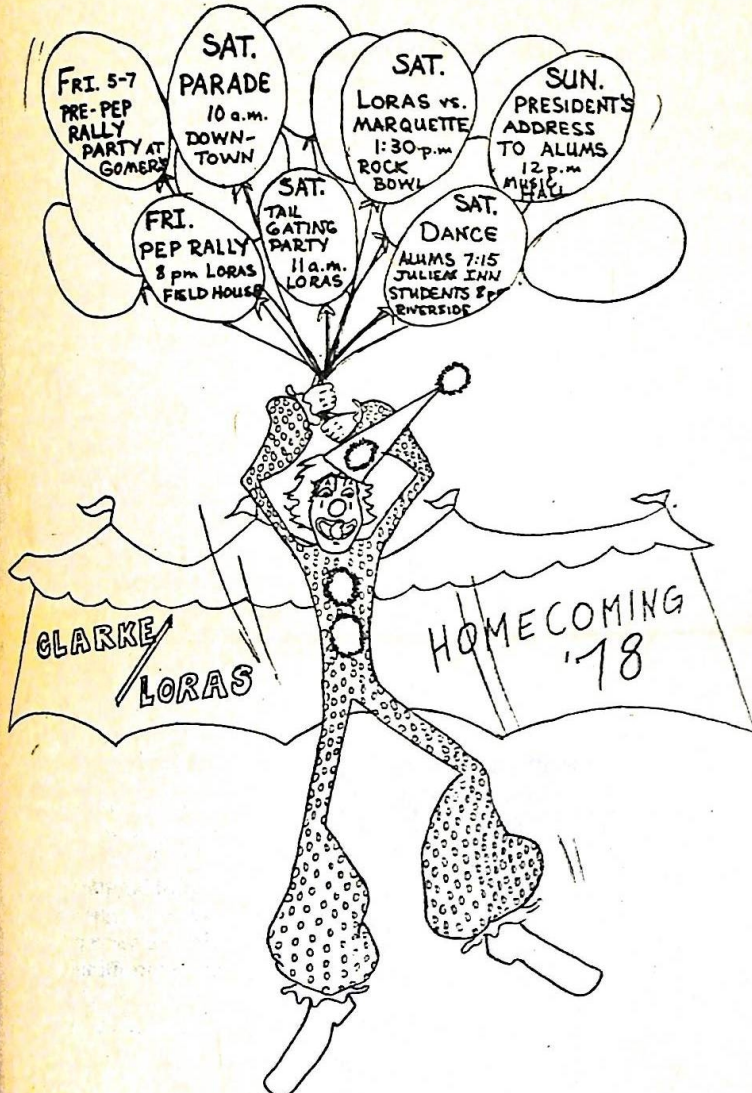 FRI. 5-7
PRE-PEP
RALLY
PARTY AT
GOMER'S
SAT.
PARADE
10 a.m.
DOWN-
TOWN
SAT.
LORAS vs.
MARQUETTE
1:30 p.m
ROCK
BOWL
SUN.
PRESIDENT'S
ADDRESS
TO ALUMS
12 p.m
MUSIC
HALL
FRI.
PEP RALLY
8 pm LORAS
FIELD HOUSE
SAT.
TAIL
GATING
PARTY
11 a.m.
LORAS
SAT.
DANCE
ALUMS 7:15
JULIEN INN
STUDENTS 8 pm
RIVERSIDE
CLARKE/
LORAS
HOMECOMING
'78